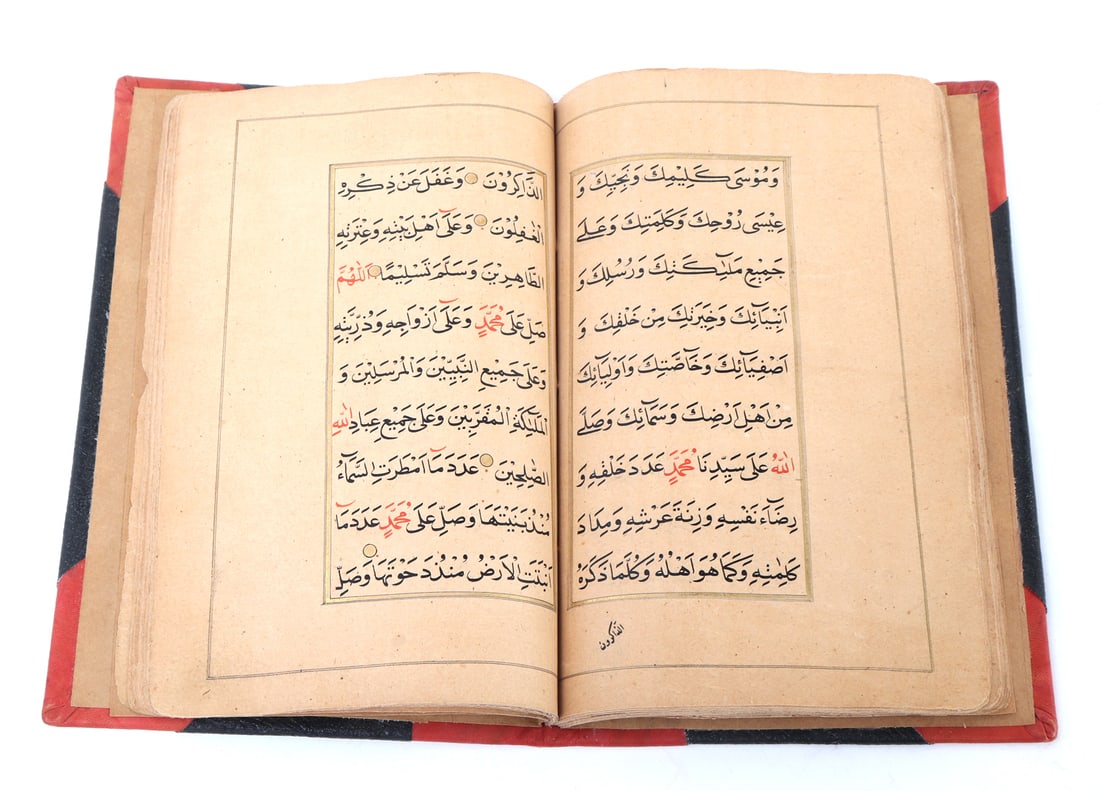 وَمُوْسٰى كَلِيْمِكَ وَنَجِيِّكَ وَ
عِيْسٰى رُوْحِكَ وَكَلِمَتِكَ وَعَلٰى
جَمِيْعِ مَلٰٓئِكَتِكَ وَرُسُلِكَ وَ
اَنْبِيَآئِكَ وَخِيَرَتِكَ مِنْ خَلْقِكَ وَ
اَصْفِيَآئِكَ وَخَآصَّتِكَ وَاَوْلِيَآئِكَ
مِنْ اَهْلِ اَرْضِكَ وَسَمَآئِكَ وَصَلَّى
اللّٰهُ عَلٰى سَيِّدِنَا مُحَمَّدٍ عَدَدَ خَلْقِهٖ وَ
رِضَآءَ نَفْسِهٖ وَزِنَةَ عَرْشِهٖ وَمِدَادَ
كَلِمٰتِهٖ وَكَمَا هُوَ اَهْلُهٗ وَكُلَّمَا ذَكَرَهُ
الذاكرون
الذَّاكِرُوْنَ وَغَفَلَ عَنْ ذِكْرِهِ
الْغٰفِلُوْنَ وَعَلٰٓى اَهْلِ بَيْتِهٖ وَعِتْرَتِهِ
الطَّاهِرِيْنَ وَسَلَّمَ تَسْلِيْمًا اَللّٰهُمَّ
صَلِّ عَلٰى مُحَمَّدٍ وَعَلٰٓى اَزْوَاجِهٖ وَذُرِّيَّتِهٖ
وَعَلٰى جَمِيْعِ النَّبِيّٖيْنَ وَالْمُرْسَلِيْنَ وَ
الْمَلٰٓئِكَةِ الْمُقَرَّبِيْنَ وَعَلٰى جَمِيْعِ عِبَادِ اللّٰهِ
الصّٰلِحِيْنَ عَدَدَ مَآ اَمْطَرَتِ السَّمَآءُ
مُنْذُ بَنَيْتَهَا وَصَلِّ عَلٰى مُحَمَّدٍ عَدَدَ مَآ
اَنْبَتَتِ الْاَرْضُ مُنْذُ دَحَوْتَهَا وَصَلِّ